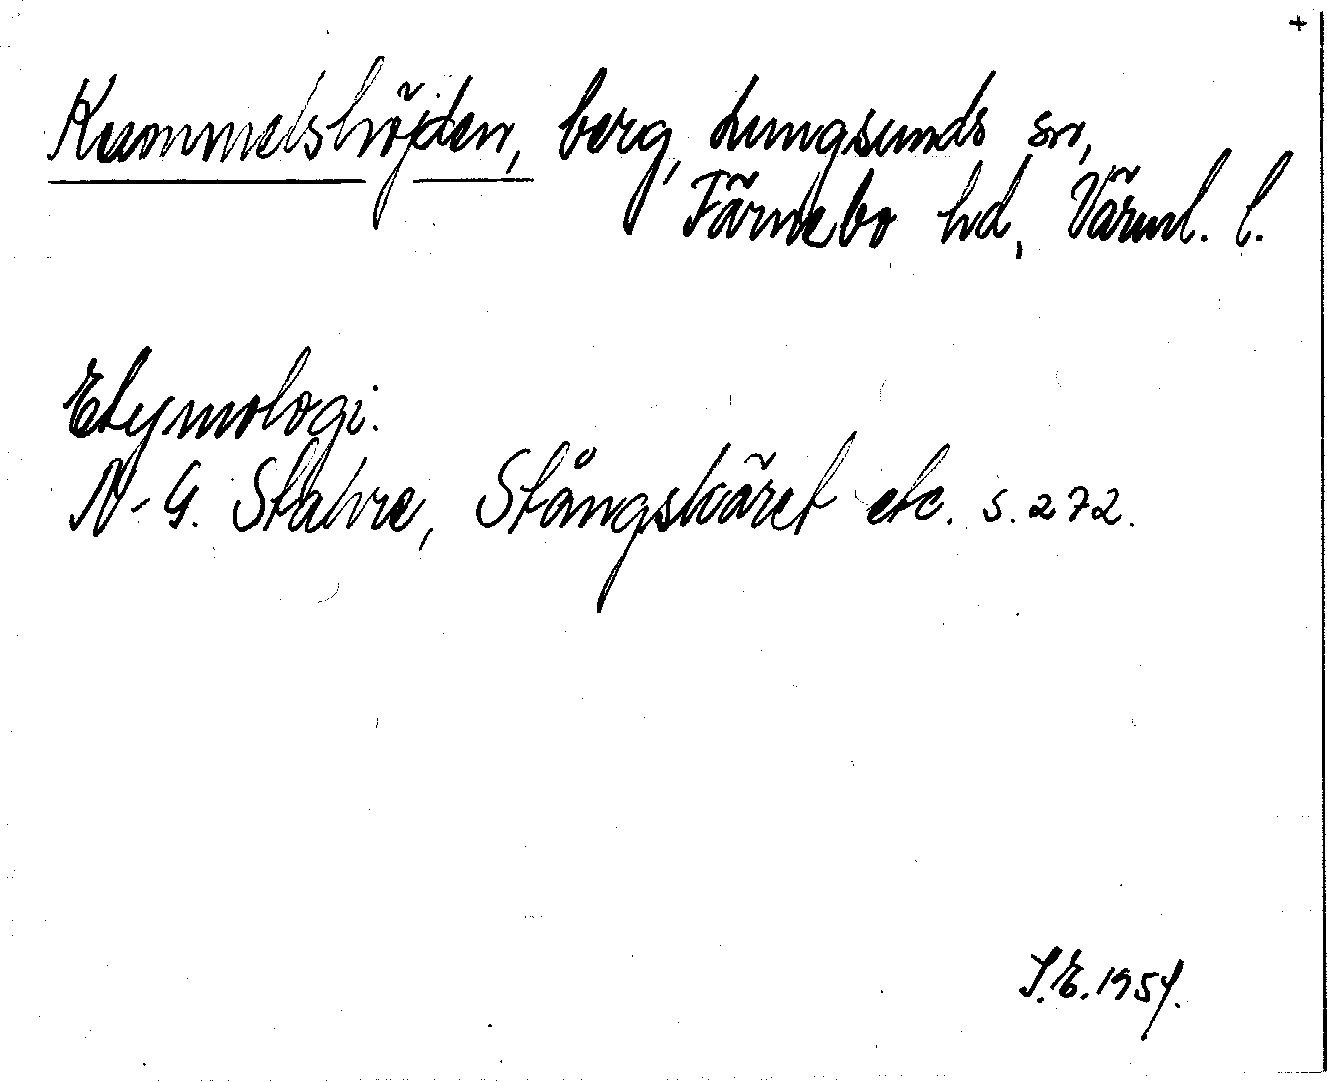 +
Kummelshöjden, berg, Lungsunds sn,
Färnebo hd, Värml. l.
Etymologi.
N-G. Stahre, Stångskäret etc. s. 272.
S.E. 1954.